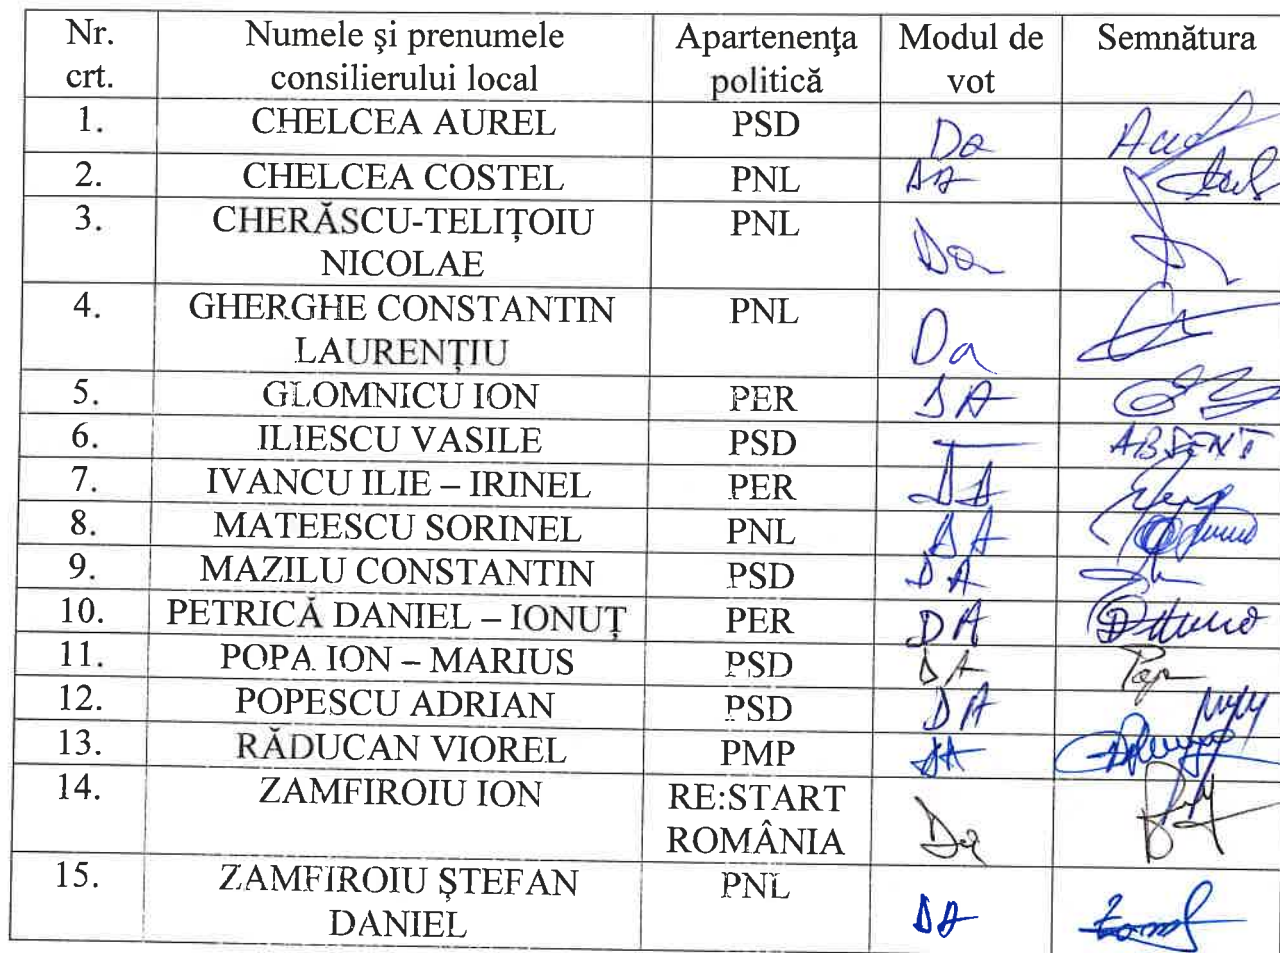 Nr. crt. Numele și prenumele consilierului local Apartenența politică Modul de vot Semnătura
1. CHELCEA AUREL PSD Da
2. CHELCEA COSTEL PNL DA
3. CHERĂSCU-TELIȚOIU NICOLAE PNL Da
4. GHERGHE CONSTANTIN LAURENȚIU PNL Da
5. GLOMNICU ION PER DA
6. ILIESCU VASILE PSD — ABSENT
7. IVANCU ILIE – IRINEL PER DA
8. MATEESCU SORINEL PNL DA
9. MAZILU CONSTANTIN PSD DA
10. PETRICĂ DANIEL – IONUȚ PER DA
11. POPA ION – MARIUS PSD DA
12. POPESCU ADRIAN PSD DA
13. RĂDUCAN VIOREL PMP DA
14. ZAMFIROIU ION RE:START ROMÂNIA Da
15. ZAMFIROIU ȘTEFAN DANIEL PNL DA